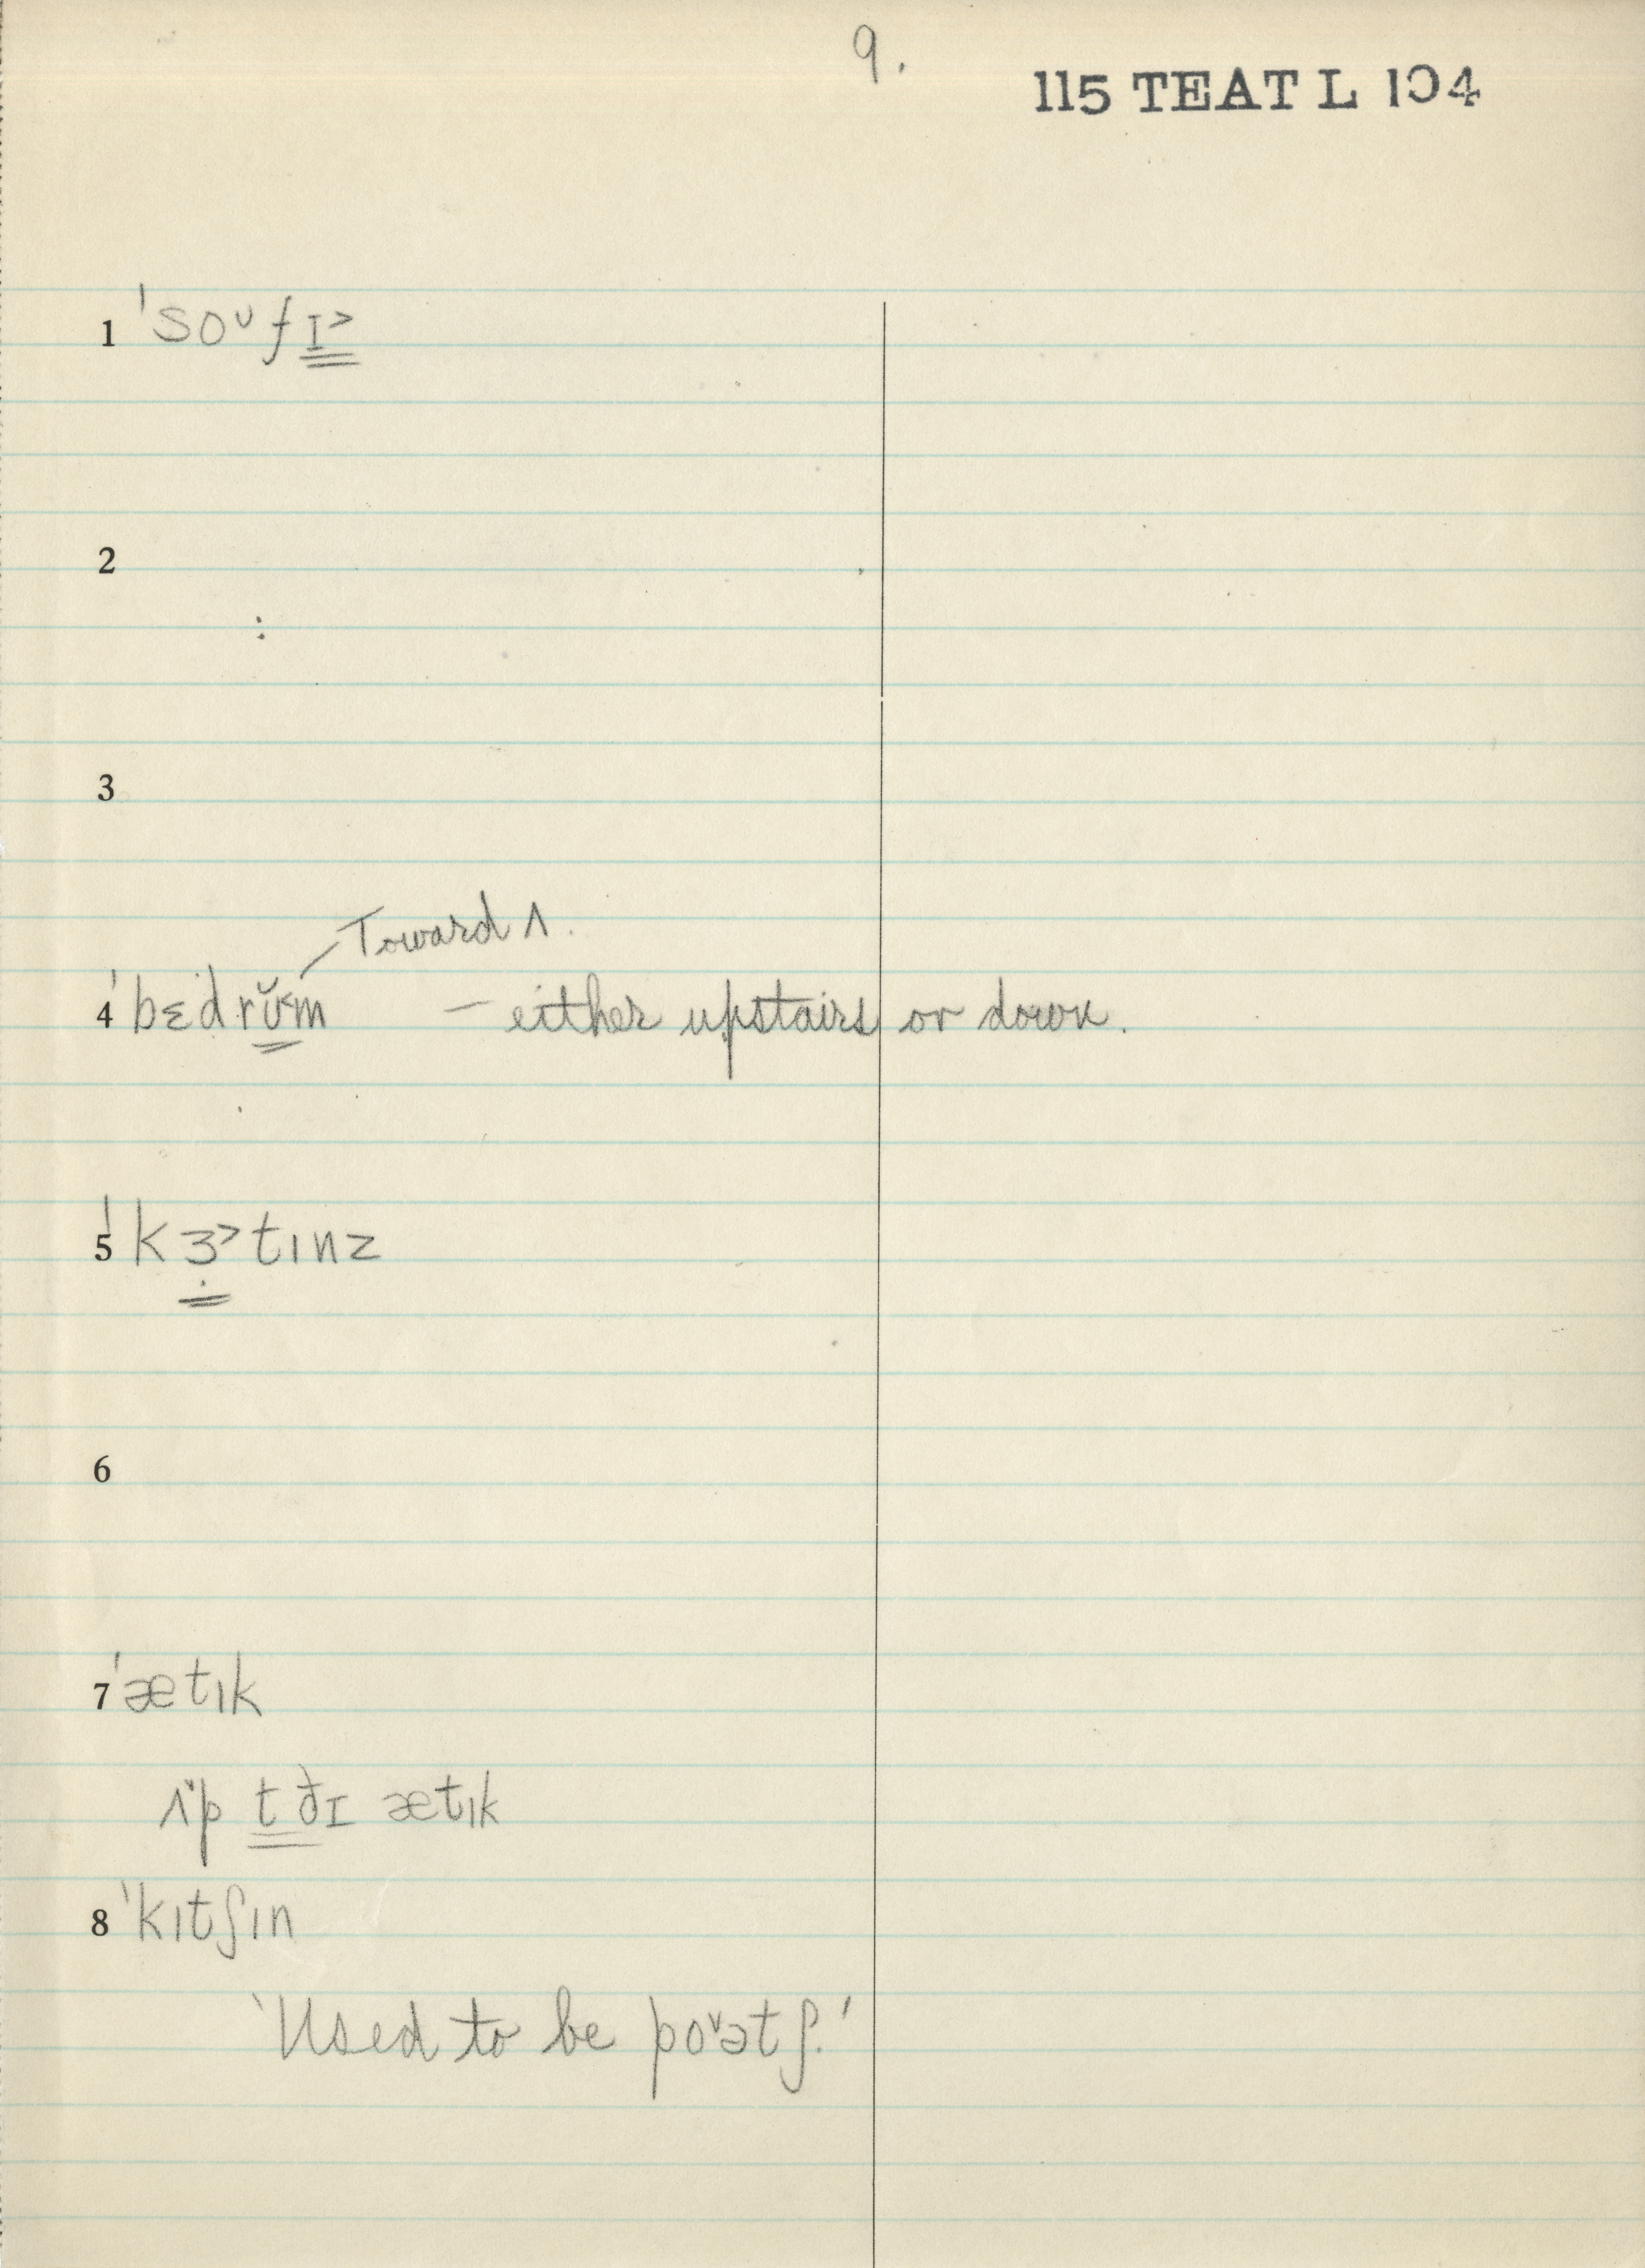 9.
115 TEAT L 104
1 ˈsoᴜfɪ˃
2
:
3
Toward ʌ.
4 ˈbɛdrʊ̆˂m – either upstairs or down.
5 ˈkɜ̣˃tɪnz
6
7 ˈætɪk
ʌ˅p t ðɪ ætɪk
8 ˈkɪtʃɪn
'Used to be po˅ətʃ.'